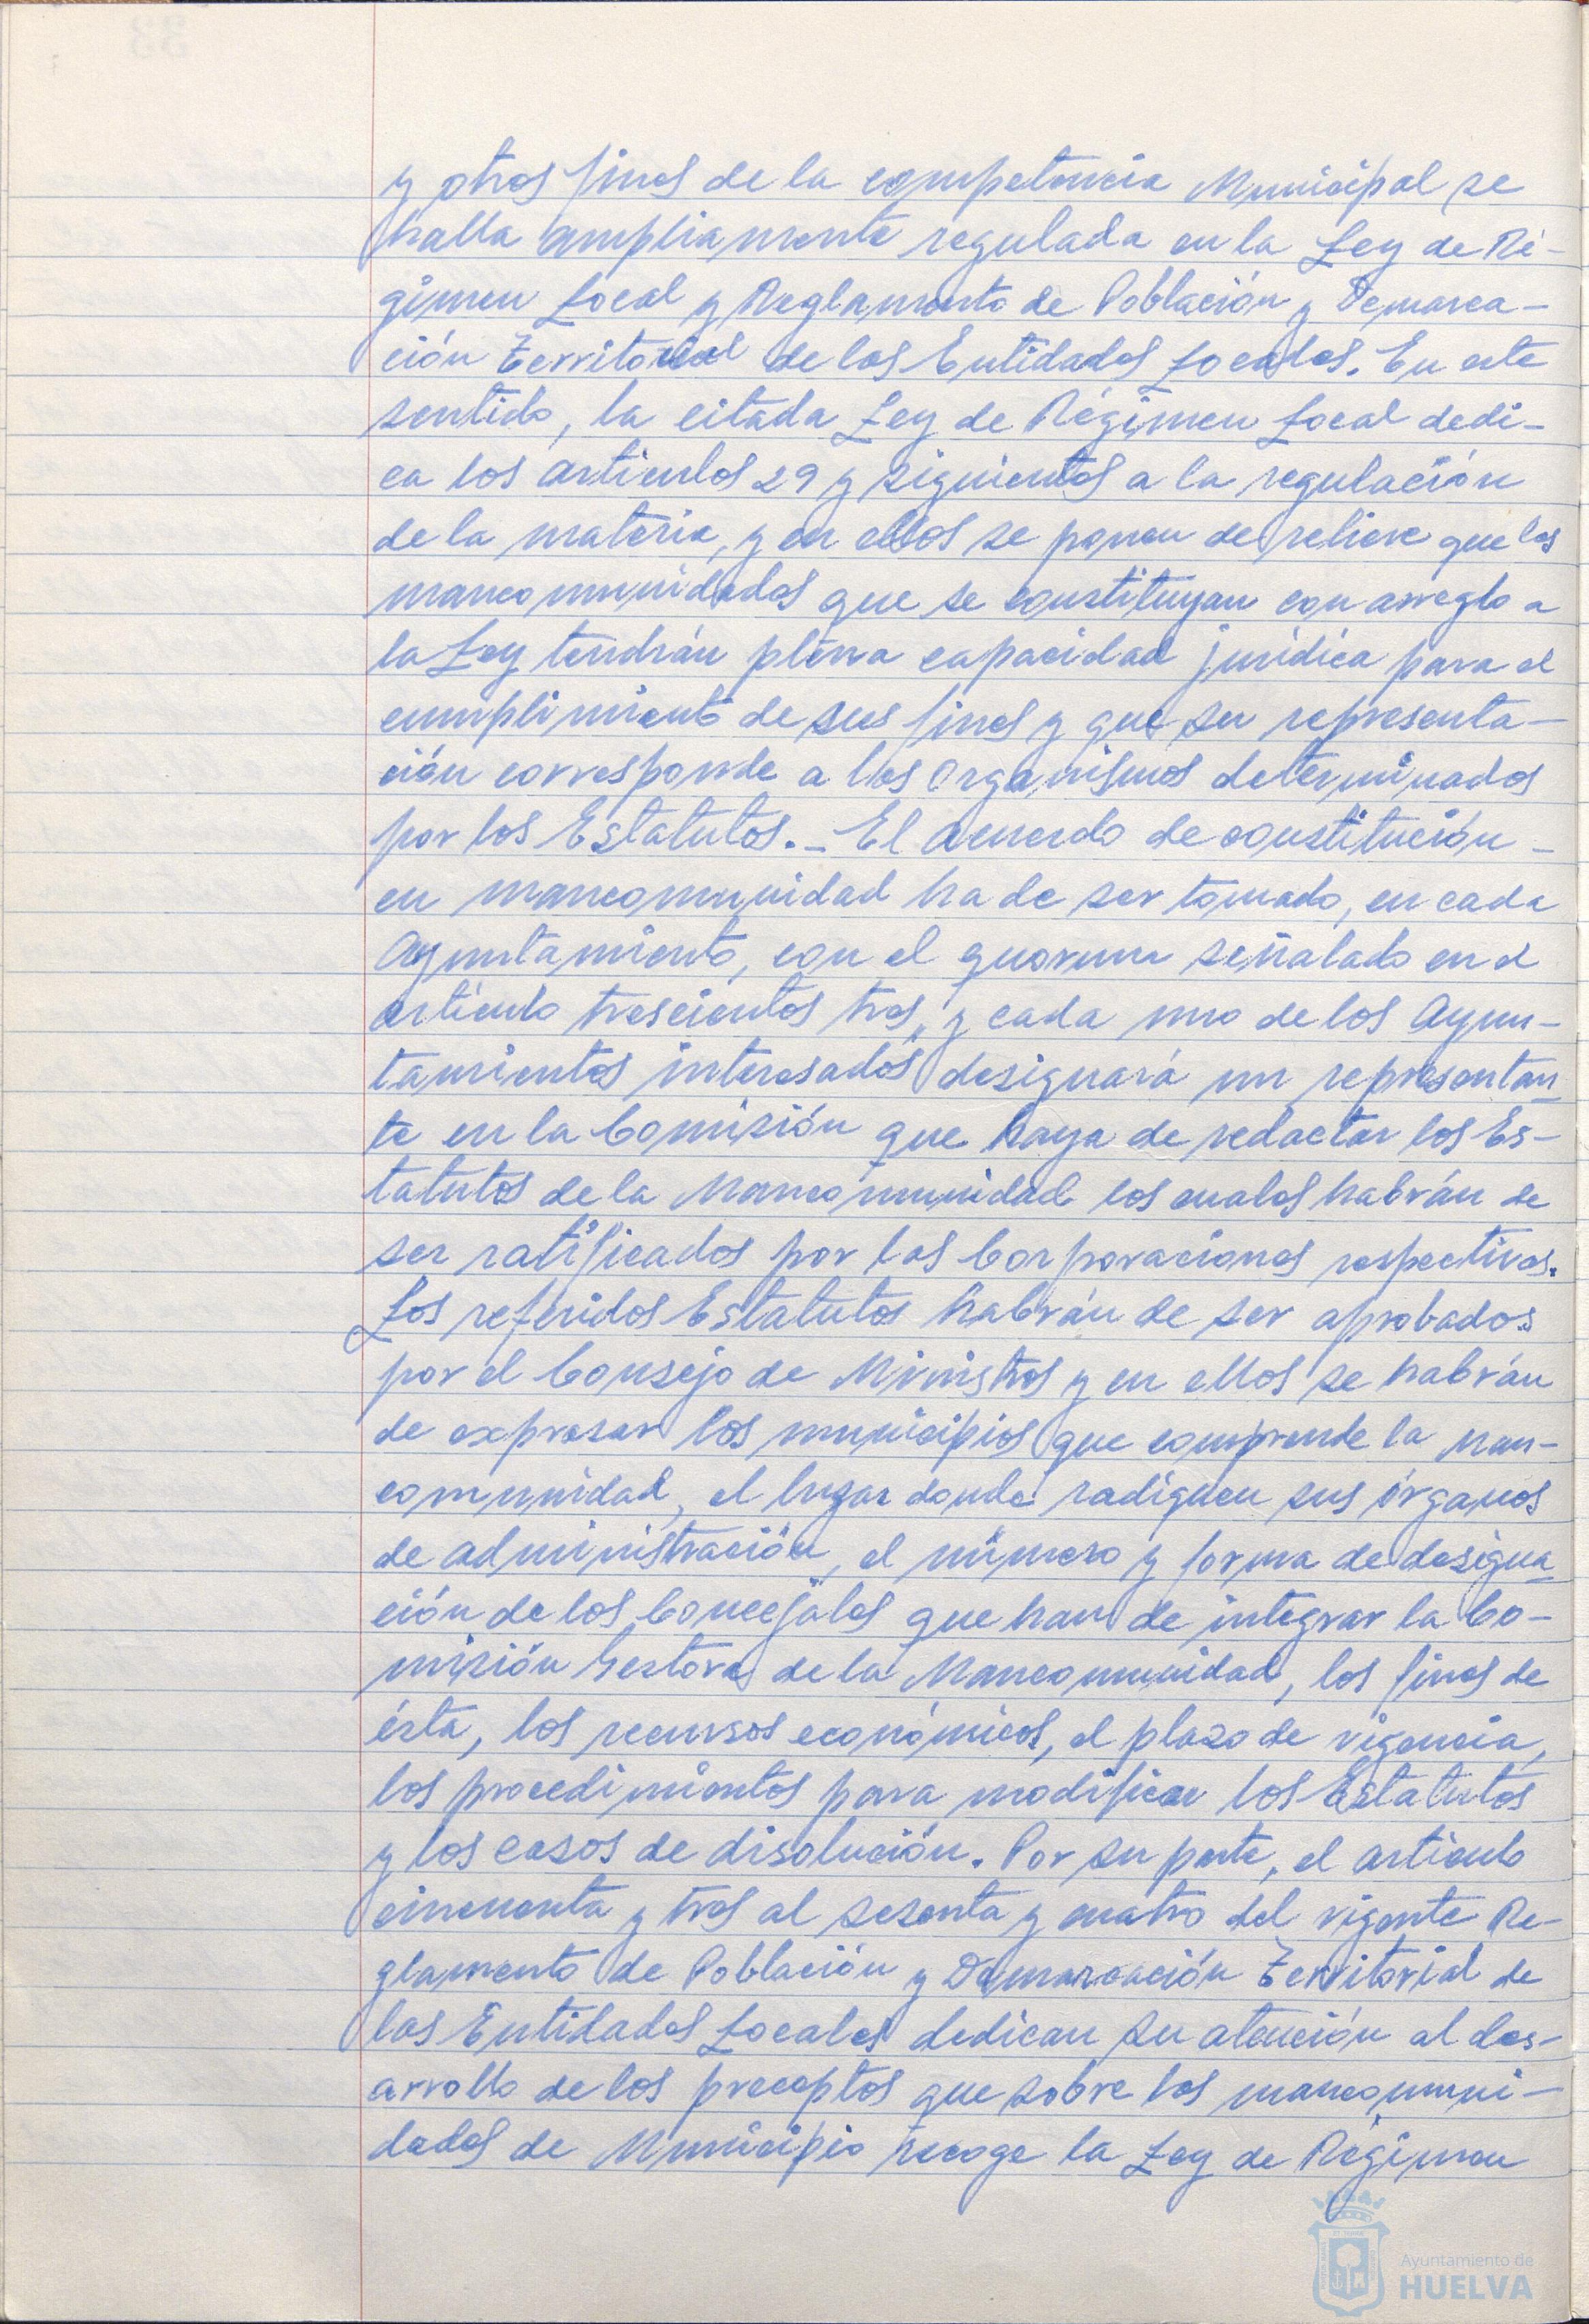 y otros fines de la competencia Municipal se
halla ampliamente regulada en la Ley de Ré-
gimen Local y Reglamento de Población y Demarca-
ción Territorial de las Entidades Locales. En este
sentido, la citada Ley de Régimen Local dedi-
ca los artículos 29 y siguientes a la regulación
de la materia, y en ellos se ponen de relieve que las
mancomunidades que se constituyan con arreglo a
la Ley tendrán plena capacidad jurídica para el
cumplimiento de sus fines y que su representa-
ción corresponde a los Organismos determinados
por los Estatutos.- El acuerdo de constitución -
en mancomunidad ha de ser tomado, en cada
Ayuntamiento, con el quorum señalado en el
artículo trescientos tres, y cada uno de los Ayun-
tamientos interesados designará un representan-
te en la Comisión que haya de redactar los Es-
tatutos de la Mancomunidad los cuales habrán de
ser ratificados por las Corporaciones respectivas.
Los referidos Estatutos habrán de ser aprobados
por el Consejo de Ministros y en ellos se habrán
de expresar los municipios que comprende la man-
comunidad, el lugar donde radiquen sus órganos
de administración, el número y forma de designa-
ción de los Concejales que han de integrar la Co-
misión Gestora de la Mancomunidad, los fines de
ésta, los recursos económicos, el plazo de vigencia,
los procedimientos para modificar los Estatutos
y los casos de disolución. Por su parte, el artículo
cincuenta y tres al sesenta y cuatro del vigente Re-
glamento de Población y Demarcación Territorial de
las Entidades Locales dedican su atención al des-
arrollo de los preceptos que sobre las mancomuni-
dades de Municipio recoge la Ley de Régimen
Ayuntamiento de
HUELVA